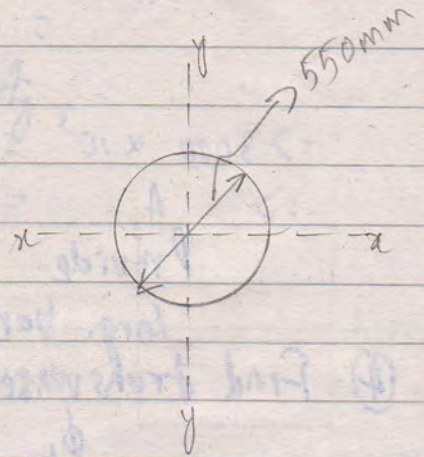 y
550mm
x
x
y